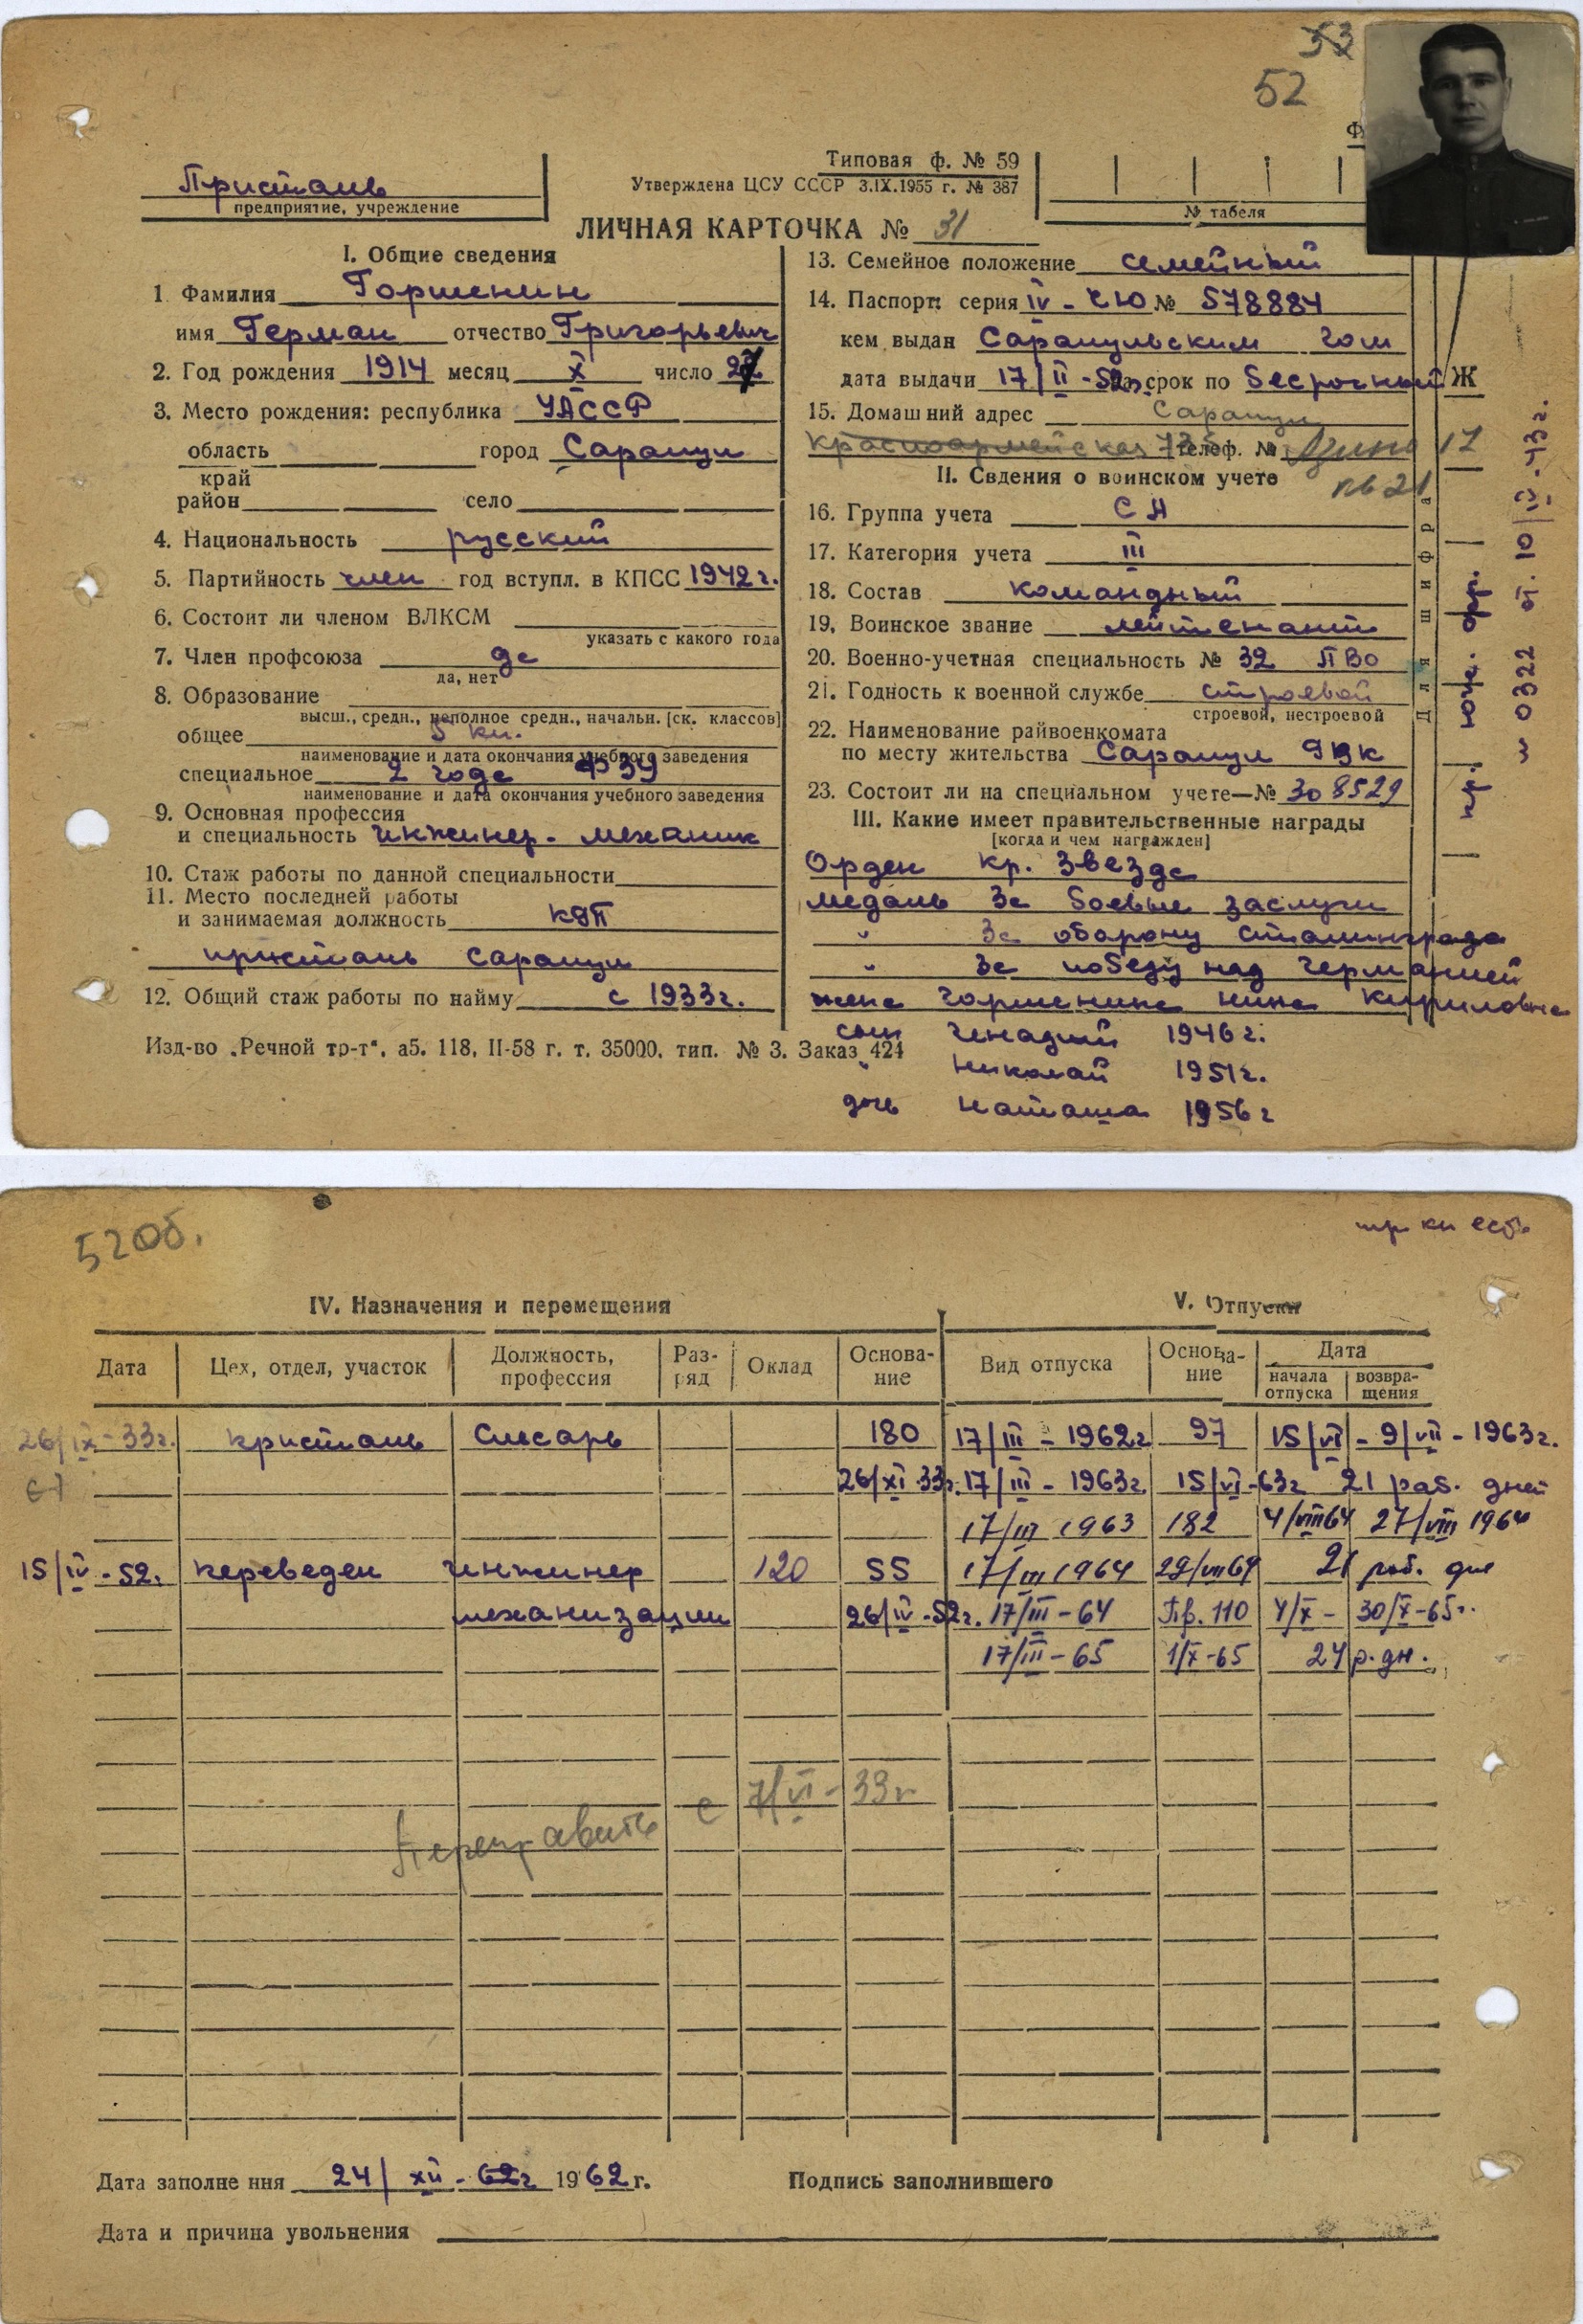 53
52
Типовая ф. № 59
Утверждена ЦСУ СССР 3.IX.1955 г. № 387
Пристань
предприятие, учреждение
№ табеля
ЛИЧНАЯ КАРТОЧКА № 31
I. Общие сведения
1 Фамилия Горшенин
имя Герман отчество Григорьевич
2. Год рождения 1914 месяц X число
3. Место рождения: республика УАССР
область город Сарапул
край
район село
4. Национальность русский
5. Партийность член год вступл. в КПСС 1942 г.
6. Состоит ли членом ВЛКСМ
указать с какого года
7. Член профсоюза да
да, нет
8. Образование
высш., средн., неполное средн., начальн. [ск. классов]
общее 5 кл.
наименование и дата окончания учебного заведения
специальное 2 года ФЗУ
наименование и дата окончания учебного заведения
9. Основная профессия
и специальность инжинер - механик
10. Стаж работы по данной специальности
11. Место последней работы
и занимаемая должность КРП
пристань Сарапул
12. Общий стаж работы по найму с 1933 г.
Изд-во „Речной тр-т“, аб. 118, II-58 г. т. 35000, тип. № 3. Заказ 424
13. Семейное положение семейный
14. Паспорт: серия IV - ЧЮ № 578884
кем выдан Сарапульским гом
дата выдачи 17/II - 52 г. на срок по бесрочный
15. Домашний адрес Сарапул
Красноармейская 73 телеф. № 17
кв 21
II. Сведения о воинском учете
16. Группа учета СА
17. Категория учета III
18. Состав командный
19. Воинское звание лейтенант
20. Военно-учетная специальность № 32 ПВО
21. Годность к военной службе строевой
строевой, нестроевой
22. Наименование райвоенкомата
по месту жительства Сарапул ГВК
23. Состоит ли на специальном учете—№ 308529
III. Какие имеет правительственные награды
[когда и чем награжден]
Орден Кр. Звезда
медаль За боевые заслуги
" За оборону Сталинграда
" За победу над Германией
жена Горшенина Нина Кириловна
сын Генадий 1946 г.
" Николай 1951 г.
дочь Наташа 1956 г
Для шифра
Ж
пр. юж. фр.
№ 0322 от 10/IV-43 г.
52 об.
тр кн есть
IV. Назначения и перемещения
V. Отпуски
Дата Цех, отдел, участок Должность, профессия Раз-ряд Оклад Основа-ние Вид отпуска Основа-ние Дата
начала отпуска возвра-щения
26/IX - 33 г. пристань Слесарь 180 17/III - 1962 г 97 15/VI - 9/VII - 1963 г.
26/XI 33 г. 17/III - 1963 г. 15/VI - 63 г 21 раб. дней
17/III 1963 182 4/VIII 64 27/VIII 1964
15/IV - 52. переведен инжинер 120 55 17/III 1964 29/VII 64 21 раб. дня
механизации 26/IV - 52 г. 17/III - 64 Пр. 110 4/X - 30/X - 65 г.
17/III - 65 1/X - 65 24 р. дн.
с 7/VI - 33 г
Дата заполнения 24/XII - 62 г 1962 г.
Подпись заполнившего
Дата и причина увольнения